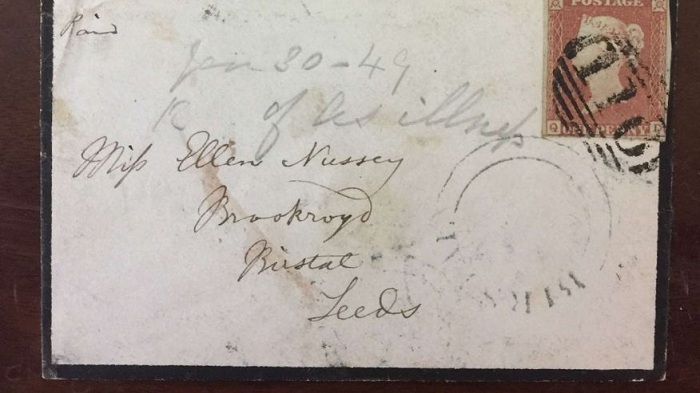 POSTAGE
Paid
Jan 30-49
of As illness
ONE PENNY
Miss Ellen Nussey
Brookroyd
Birstal
Leeds